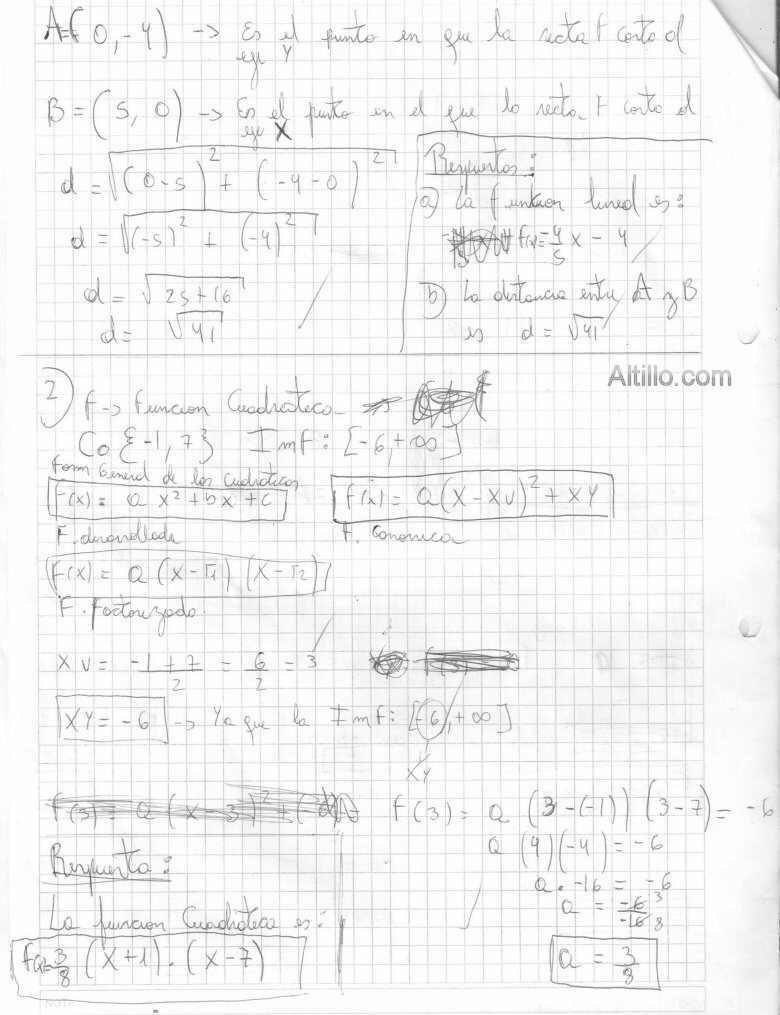 A=(0,-4) -> Es el punto en que la recta f corta al
eje Y
B = (5, 0) -> Es el punto en el que la recta f corta al
eje X
d = √((0-5)² + (-4-0)²)
d = √((-5)² + (-4)²)
d = √(25+16)
d = √41
Respuestas:
a) La funcion lineal es:
f(x)=4/5 x - 4
b) La distancia entre A y B
es d = √41
Altillo.com
2) f -> Funcion Cuadratica
Co {-1, 7} Imf: [-6,+∞]
Form General de las cuadraticas
F(x)= a x² + bx + c
F. desarrollada
f(x) = a(x-xv)² + XY
F. Canonica
F(x) = a (x-r1) (x-r2)
F. Factorizada.
XV = (-1+7)/2 = 6/2 = 3
XY = -6 -> Ya que la Imf: [-6,+∞]
XY
f(3) = a (3-(-1)) (3-7) = -6
a (4)(-4) = -6
a . -16 = -6
a = -6/-16 3/8
a = 3/8
Respuesta:
La funcion Cuadratica es:
f(x)=3/8 (x+1) . (x-7)
NOTA